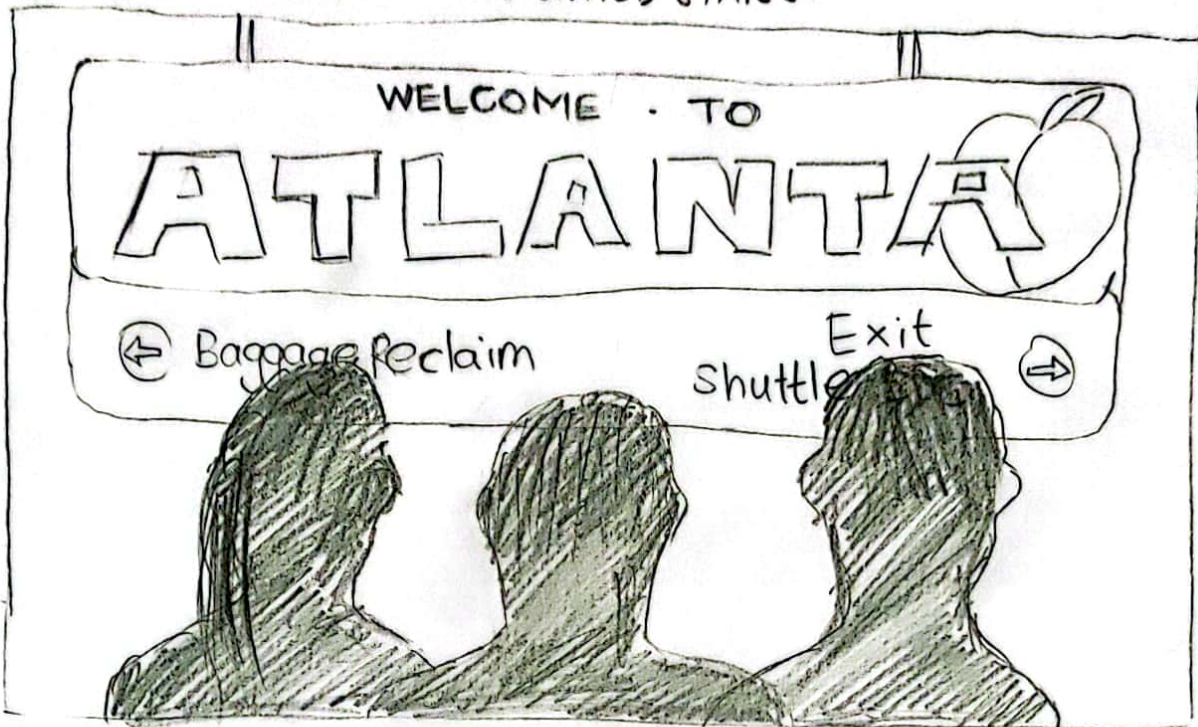 WELCOME . TO
ATLANTA
Baggage Reclaim
Exit
Shuttle